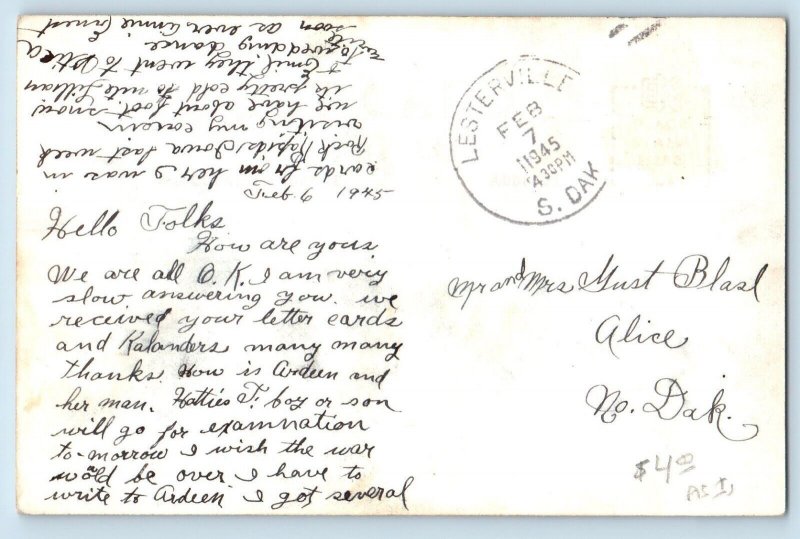 Feb 6 1945
Hello Folks
How are yous
We are all O.K. I am very
slow answering you. we
received your letter cards
and Kalanders many many
thanks. How is Ardeen and
her man. Hatties F. boy or son
will go for examnation
to-morrow I wish the war
would be over I have to
write to Ardeen I got several
cards from her I was in
Rock Rapids Iowa last week
visiting my cousin
we have about foot snow
its pretty cold to nite Lillian
& Emil they went to
wedding dance.
soon as ever Annie Ernest
LESTERVILLE
FEB
7
1945
430PM
S. DAK
Mr and Mrs Gust Blasl
Alice
No. Dak.
$4.00